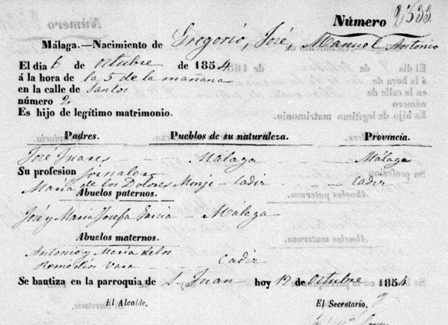 Número 2533.
Málaga.—Nacimiento de Gregorio, José, Manuel Antonio
El dia 6 de octubre de 1854
á la hora de la 5 de la mañana
en la calle de Santos
número 2.
Es hijo de legítimo matrimonio.
Padres. Pueblos de su naturaleza. Provincia.
José Juares Malaga Malaga
Su profesion Jornalero
María de los Dolores Monje - Cadiz Cadiz
Abuelos paternos.
José y Maria Josefa Garcia - Malaga
Abuelos maternos.
Antonio y Maria de los
Remedios Vara Cadiz
Se bautiza en la parroquia de S. Juan hoy 12 de Octubre 1854
El Alcalde. El Secretario.